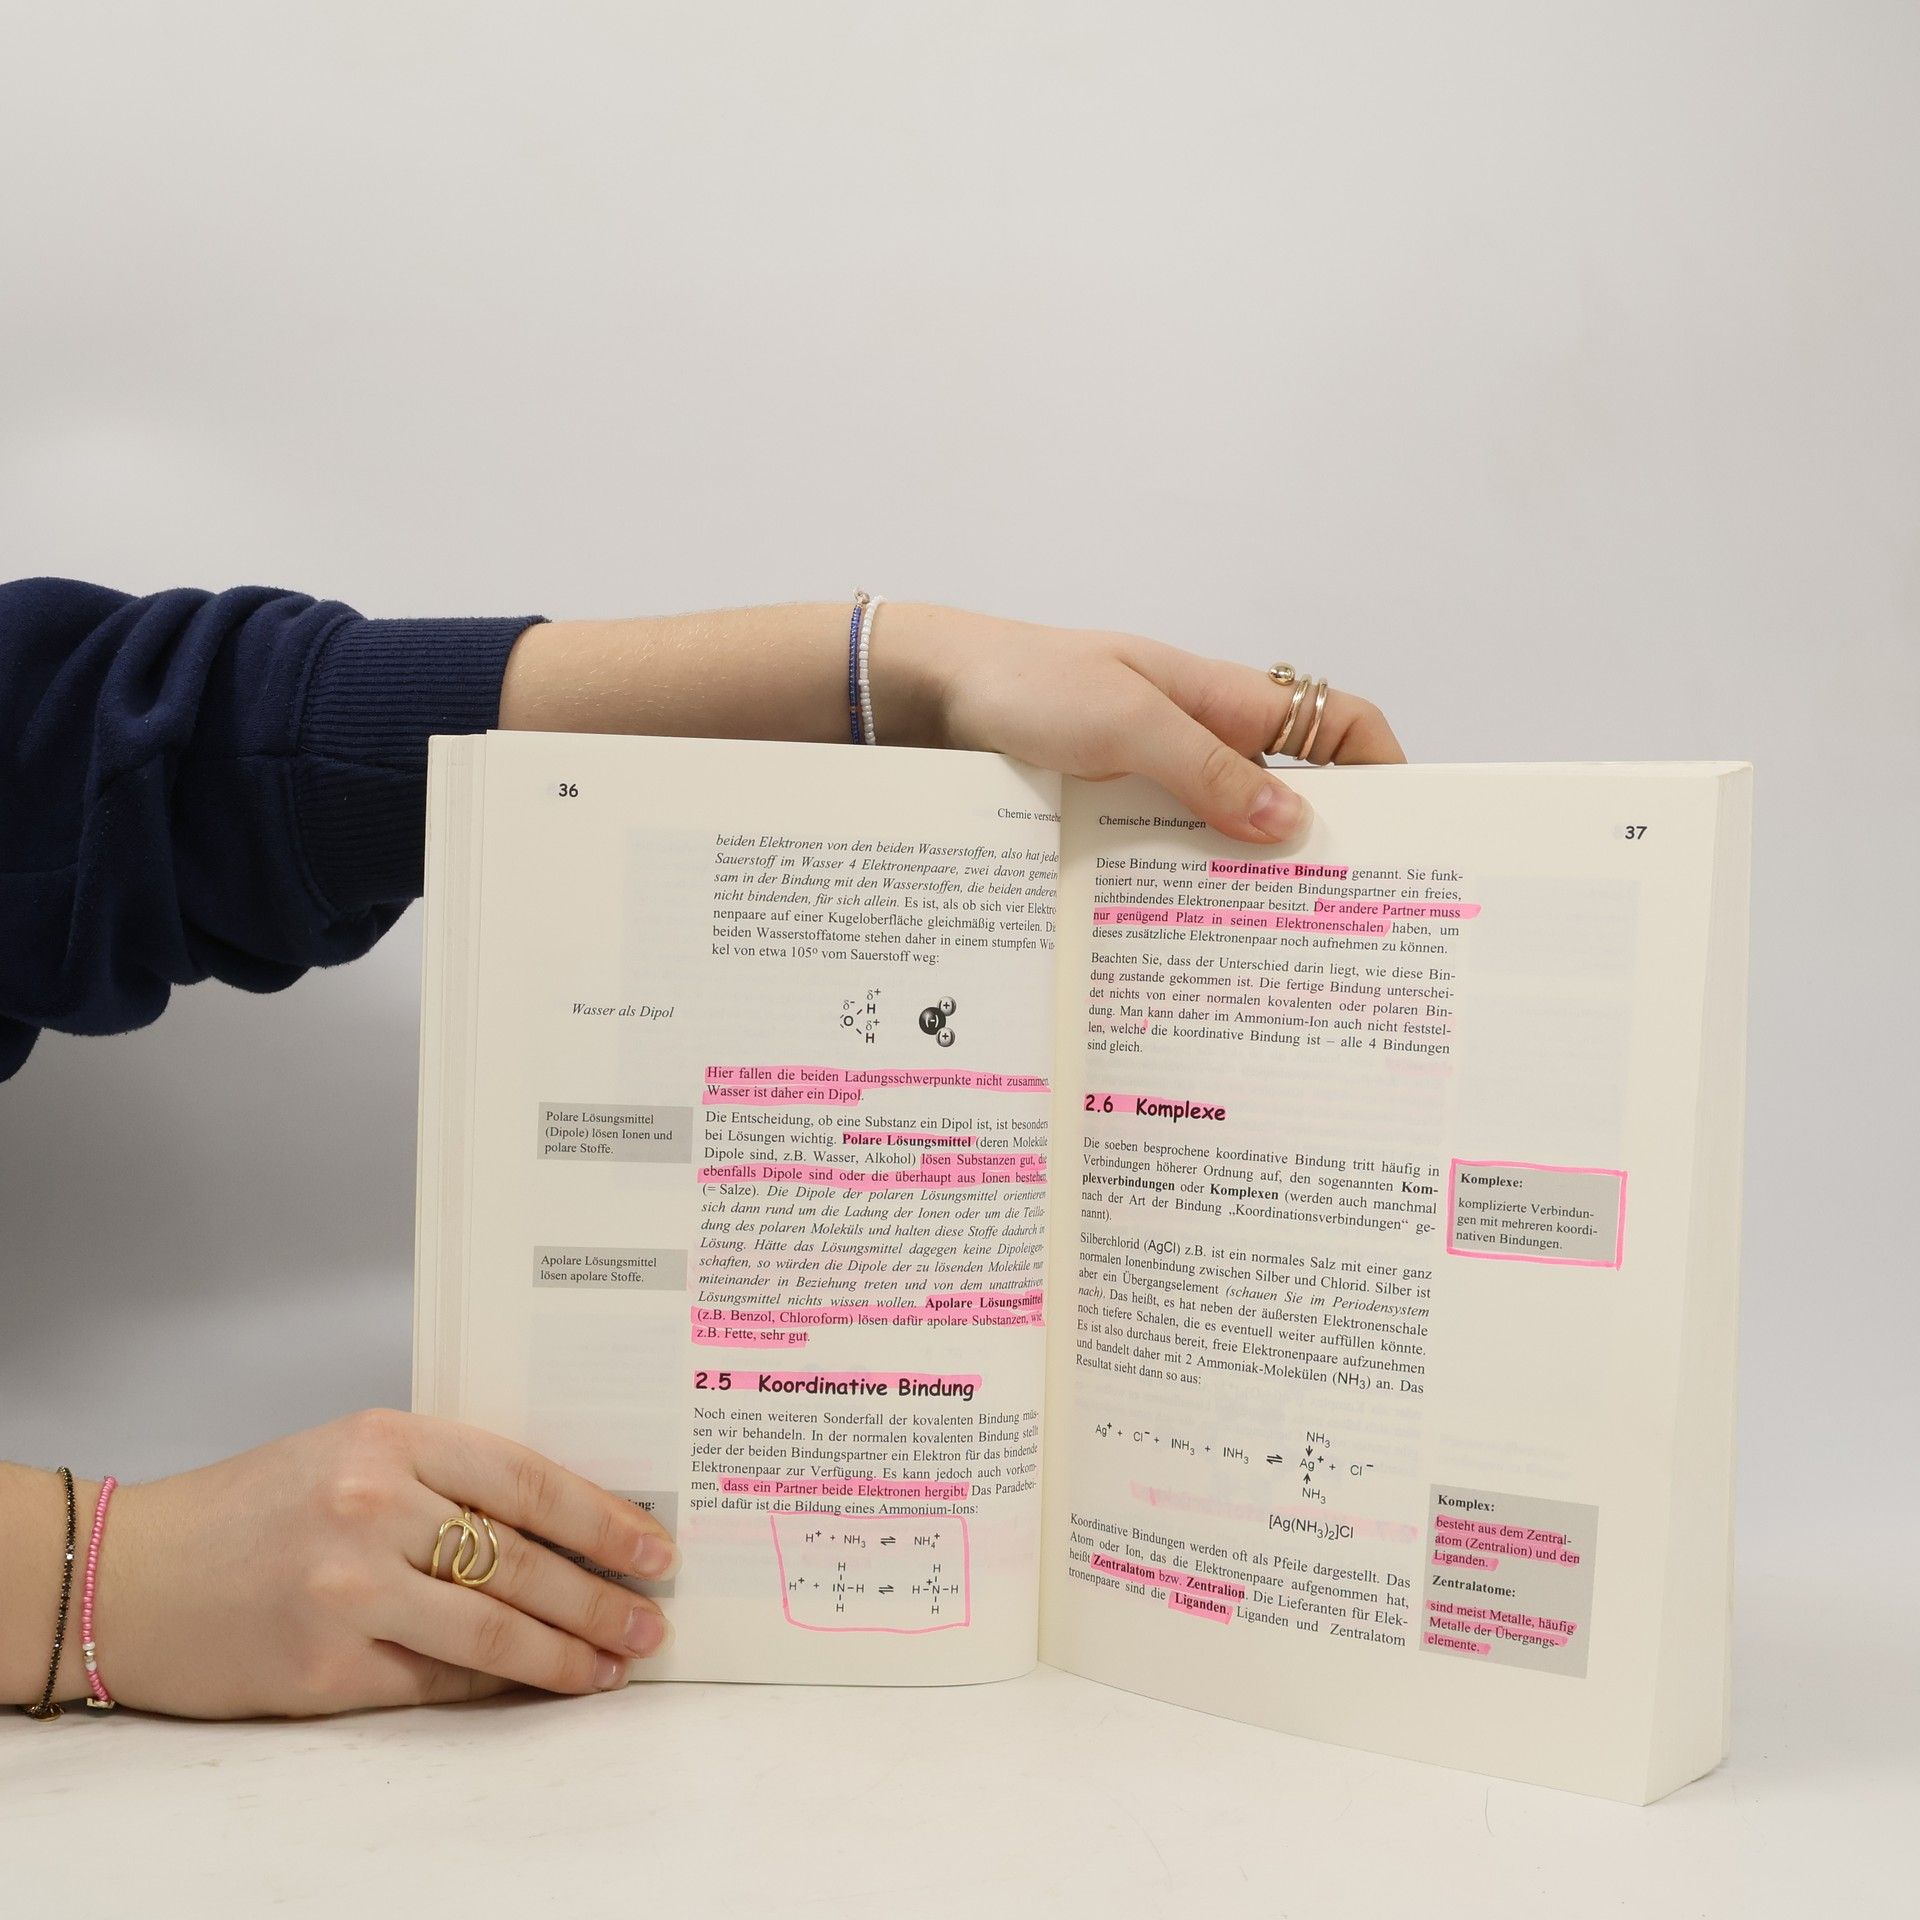 36
Chemie
beiden Elektronen von den beiden Wasserstoffen, also hat jede
Sauerstoff im Wasser 4 Elektronenpaare, zwei davon gemein
sam in der Bindung mit den Wasserstoffen, die beiden anderen
nicht bindenden, für sich allein. Es ist, als ob sich vier Elektro
nenpaare auf einer Kugeloberfläche gleichmäßig verteilen.
beiden Wasserstoffatome stehen daher in einem stumpfen Win-
kel von etwa 105º vom Sauerstoff weg:
Wasser als Dipol
δ+
δ- H
O δ+
H
(+)
(-)
(+)
Hier fallen die beiden Ladungsschwerpunkte nicht zusammen.
Wasser ist daher ein Dipol.
Polare Lösungsmittel
(Dipole) lösen Ionen und
polare Stoffe.
Die Entscheidung, ob eine Substanz ein Dipol ist, ist besonders
bei Lösungen wichtig. Polare Lösungsmittel (deren Moleküle
Dipole sind, z.B. Wasser, Alkohol) lösen Substanzen gut, die
ebenfalls Dipole sind oder die überhaupt aus Ionen bestehen
(= Salze). Die Dipole der polaren Lösungsmittel orientieren
sich dann rund um die Ladung der Ionen oder um die Teilla-
dung des polaren Moleküls und halten diese Stoffe dadurch in
Lösung. Hätte das Lösungsmittel dagegen keine Dipoleigen-
schaften, so würden die Dipole der zu lösenden Moleküle nur
miteinander in Beziehung treten und von dem unattraktiven
Lösungsmittel nichts wissen wollen. Apolare Lösungsmittel
(z.B. Benzol, Chloroform) lösen dafür apolare Substanzen, wie
z.B. Fette, sehr gut.
Apolare Lösungsmittel
lösen apolare Stoffe.
2.5 Koordinative Bindung
Noch einen weiteren Sonderfall der kovalenten Bindung müs-
sen wir behandeln. In der normalen kovalenten Bindung stellt
jeder der beiden Bindungspartner ein Elektron für das bindende
Elektronenpaar zur Verfügung. Es kann jedoch auch vorkom-
men, dass ein Partner beide Elektronen hergibt. Das Paradebei-
spiel dafür ist die Bildung eines Ammonium-Ions:
H⁺ + NH₃ ⇌ NH₄⁺
H H
H⁺ + IN-H ⇌ H-N⁺-H
H H
Chemische Bindungen
37
Diese Bindung wird koordinative Bindung genannt. Sie funk-
tioniert nur, wenn einer der beiden Bindungspartner ein freies,
nichtbindendes Elektronenpaar besitzt. Der andere Partner muss
nur genügend Platz in seinen Elektronenschalen haben, um
dieses zusätzliche Elektronenpaar noch aufnehmen zu können.
Beachten Sie, dass der Unterschied darin liegt, wie diese Bin-
dung zustande gekommen ist. Die fertige Bindung unterschei-
det nichts von einer normalen kovalenten oder polaren Bin-
dung. Man kann daher im Ammonium-Ion auch nicht feststel-
len, welche die koordinative Bindung ist – alle 4 Bindungen
sind gleich.
2.6 Komplexe
Die soeben besprochene koordinative Bindung tritt häufig in
Verbindungen höherer Ordnung auf, den sogenannten Kom-
plexverbindungen oder Komplexen (werden auch manchmal
nach der Art der Bindung „Koordinationsverbindungen“ ge-
nannt).
Komplexe:
komplizierte Verbindun-
gen mit mehreren koordi-
nativen Bindungen.
Silberchlorid (AgCl) z.B. ist ein normales Salz mit einer ganz
normalen Ionenbindung zwischen Silber und Chlorid. Silber ist
aber ein Übergangselement (schauen Sie im Periodensystem
nach). Das heißt, es hat neben der äußersten Elektronenschale
noch tiefere Schalen, die es eventuell weiter auffüllen könnte.
Es ist also durchaus bereit, freie Elektronenpaare aufzunehmen
und bandelt daher mit 2 Ammoniak-Molekülen (NH₃) an. Das
Resultat sieht dann so aus:
NH₃
↓
Ag⁺ + Cl⁻ + INH₃ + INH₃ ⇌ Ag⁺ + Cl⁻
↑
NH₃
[Ag(NH₃)₂]Cl
Koordinative Bindungen werden oft als Pfeile dargestellt. Das
Atom oder Ion, das die Elektronenpaare aufgenommen hat,
heißt Zentralatom bzw. Zentralion. Die Lieferanten für Elek-
tronenpaare sind die Liganden. Liganden und Zentralatom
Komplex:
besteht aus dem Zentral-
atom (Zentralion) und den
Liganden.
Zentralatome:
sind meist Metalle, häufig
Metalle der Übergangs-
elemente.